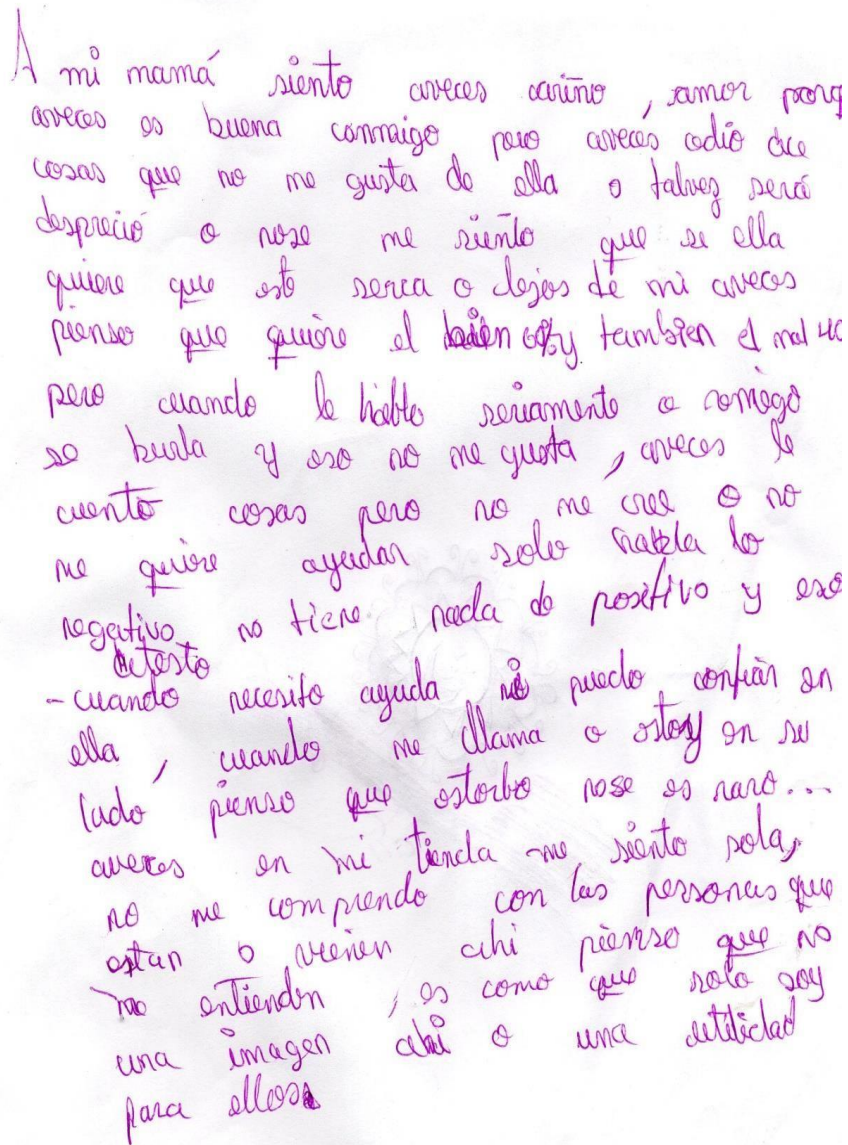 A mi mamá siento aveces cariño, amor porq
aveces es buena conmaigo pero aveces odio de
cosas que no me gusta de ella o talvez será
despreció o nose me siento que si ella
quiere que este serca o lejos de mi aveces
pienso que quiere el bien 60% y tambien el mal 40
pero cuando le hablo seriamente o comigo
se burla y eso no me gusta, aveces le
cuento cosas pero no me cree o no
me quiere ayudar solo habla lo
negativo no tiene nada de positivo y eso
detesto
- cuando necesito ayuda no puedo confiar en
ella, cuando me llama o estoy en su
lado pienso que estorbo nose es raro...
aveces en mi tienda me siento sola,
no me comprendo con las personas que
estan o vienen ahi pienso que no
me entienden, es como que solo soy
una imagen ahi o una utilidad
para ellos